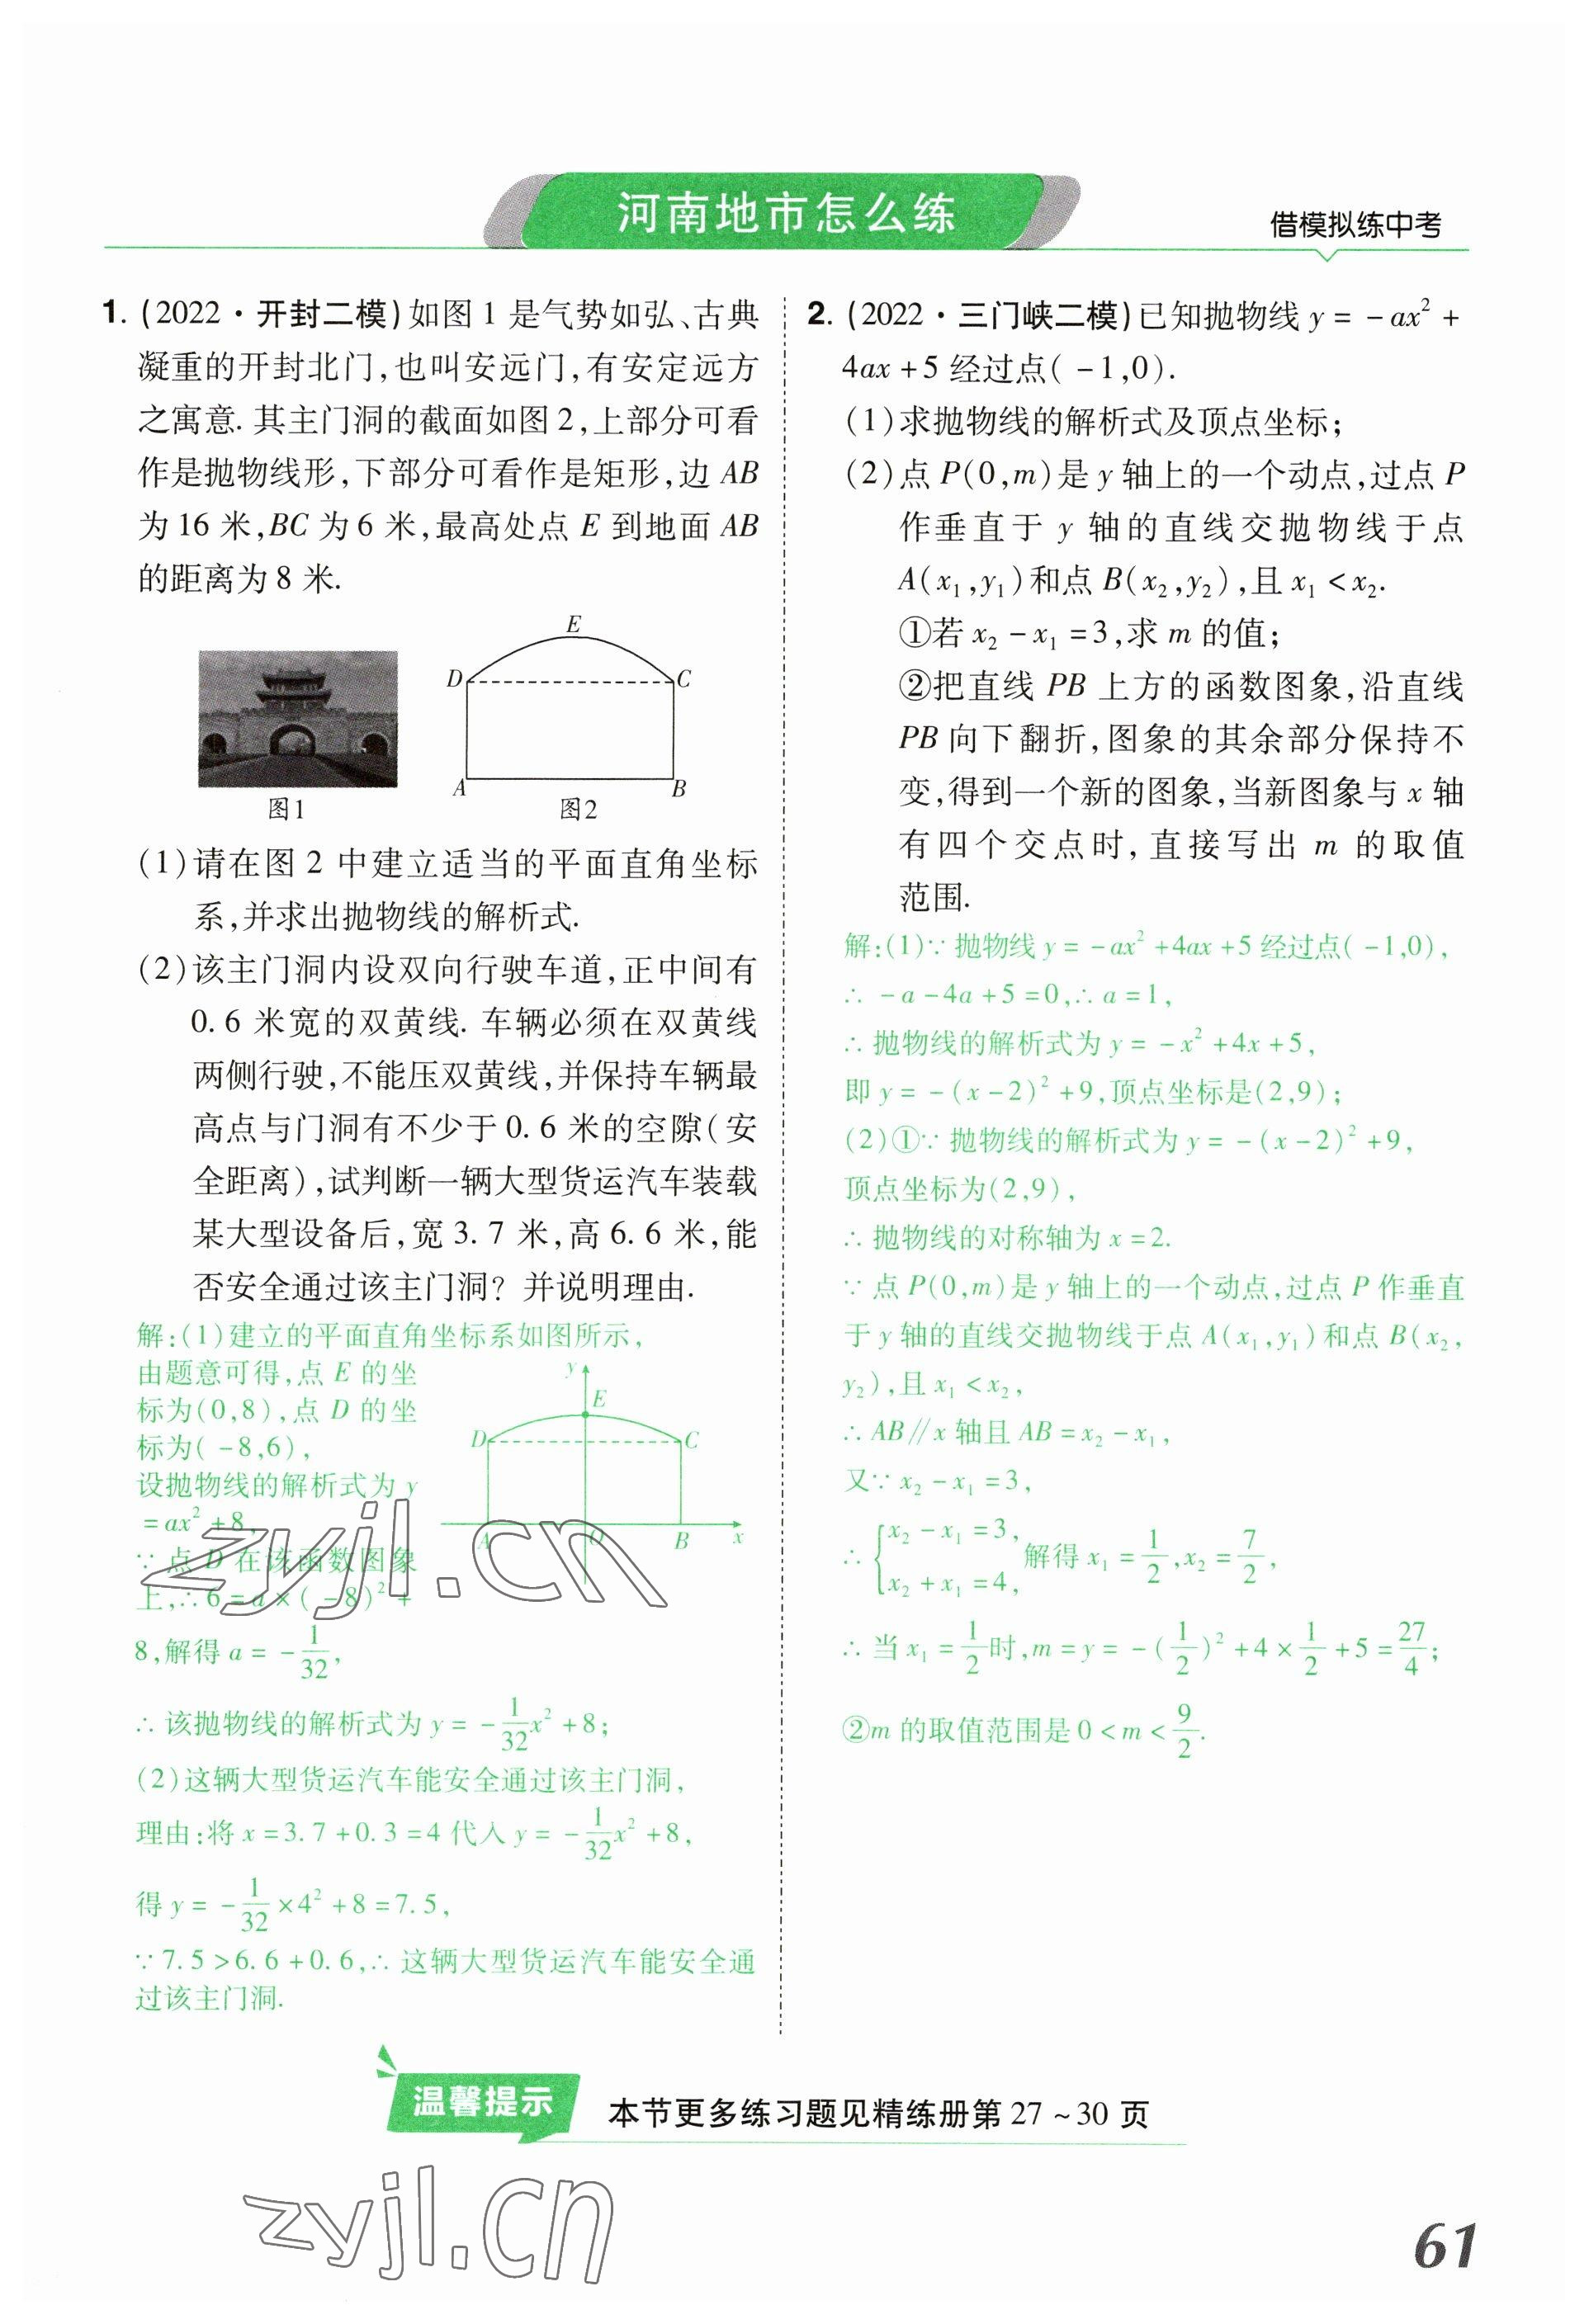 河南地市怎么练
借模拟练中考
1. (2022·开封二模)如图 1 是气势如弘、古典
凝重的开封北门,也叫安远门,有安定远方
之寓意. 其主门洞的截面如图 2,上部分可看
作是抛物线形,下部分可看作是矩形,边 AB
为 16 米,BC 为 6 米,最高处点 E 到地面 AB
的距离为 8 米.
E
D
C
A
B
图1
图2
(1)请在图 2 中建立适当的平面直角坐标
系,并求出抛物线的解析式.
(2)该主门洞内设双向行驶车道,正中间有
0.6 米宽的双黄线. 车辆必须在双黄线
两侧行驶,不能压双黄线,并保持车辆最
高点与门洞有不少于 0.6 米的空隙(安
全距离),试判断一辆大型货运汽车装载
某大型设备后,宽 3.7 米,高 6.6 米,能
否安全通过该主门洞? 并说明理由.
解:(1)建立的平面直角坐标系如图所示,
由题意可得,点 E 的坐
标为(0,8),点 D 的坐
标为(-8,6),
设抛物线的解析式为 y
=ax²+8,
∵点 D 在该函数图象
上,∴6=a×(-8)²+
8,解得 a=-1/32,
y
E
D
C
A
O
B
x
∴该抛物线的解析式为 y=-1/32x²+8;
(2)这辆大型货运汽车能安全通过该主门洞,
理由:将 x=3.7+0.3=4 代入 y=-1/32x²+8,
得 y=-1/32×4²+8=7.5,
∵7.5>6.6+0.6,∴这辆大型货运汽车能安全通
过该主门洞.
2. (2022·三门峡二模)已知抛物线 y=-ax²+
4ax+5 经过点(-1,0).
(1)求抛物线的解析式及顶点坐标;
(2)点 P(0,m)是 y 轴上的一个动点,过点 P
作垂直于 y 轴的直线交抛物线于点
A(x₁,y₁)和点 B(x₂,y₂),且 x₁<x₂.
①若 x₂-x₁=3,求 m 的值;
②把直线 PB 上方的函数图象,沿直线
PB 向下翻折,图象的其余部分保持不
变,得到一个新的图象,当新图象与 x 轴
有四个交点时,直接写出 m 的取值
范围.
解:(1)∵抛物线 y=-ax²+4ax+5 经过点(-1,0),
∴-a-4a+5=0,∴a=1,
∴抛物线的解析式为 y=-x²+4x+5,
即 y=-(x-2)²+9,顶点坐标是(2,9);
(2)①∵抛物线的解析式为 y=-(x-2)²+9,
顶点坐标为(2,9),
∴抛物线的对称轴为 x=2.
∵点 P(0,m)是 y 轴上的一个动点,过点 P 作垂直
于 y 轴的直线交抛物线于点 A(x₁,y₁)和点 B(x₂,
y₂),且 x₁<x₂,
∴AB∥x 轴且 AB=x₂-x₁,
又∵x₂-x₁=3,
∴{x₂-x₁=3, x₂+x₁=4, 解得 x₁=1/2,x₂=7/2,
∴当 x₁=1/2时,m=y=-(1/2)²+4×1/2+5=27/4;
②m 的取值范围是 0<m<9/2.
zyjl.cn
温馨提示
本节更多练习题见精练册第 27~30 页
zyjl.cn
61